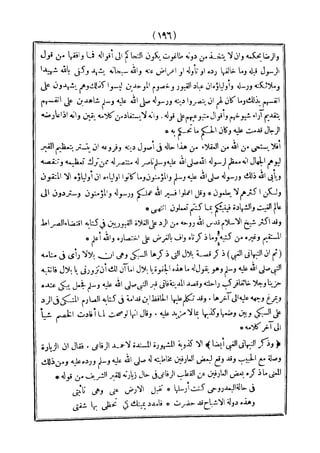 (١٩٦)
والرضا بحكمه وان لا يتخذ من دونه طاغوت يكون التحاكم الى أقواله فما وافقها من قول
الرسول قبله وما خالفها رده او تأوله او اعراض عنه والله سبحانه يشهد وكفى بالله شهيدا
وملائكته ورسله وأولياؤه ان عباد القبور وخصوم الموحدين ليسوا كذلك وهم يشهدون على
انفسهم بذلك وما كان لهم ان ينصروا دينه ورسوله صلى الله عليه وسلم شاهدين على انفسهم
بتقديم آراء شيوخهم وأقوال متبوعيهم على قوله . وانه لا يستفاد من كلامه يقين وانه اذا عارضه
الرجال قدمت عليه وكان الحكم ما تحكم به *
أفلا يستحي من الله من العقلاء من هذا حاله في أصول دينه وفروعه ان يتستر بتعظيم القبر
ليوهم الجهال انه معظم لرسول الله صلى الله عليه وسلم ناصر له منتصر له ممن ترك تعظيمه وتنقصه
ويأبى الله ذلك ورسوله صلى الله عليه وسلم والمؤمنون وما كانوا أولياءه ان أولياؤه الا المتقون
ولكن اكثرهم لا يعلمون * وقل اعملوا فسيرى الله عملكم ورسوله والمؤمنون وستردون الى
عالم الغيب والشهادة فينبئكم بما كنتم تعملون انتهى *
وقد اكثر شيخ الاسلام قدس الله روحه من الرد على الغلاة القبوريين في كتابه اقتضاء الصراط
المستقيم وغيره من كتبه وما ذكرناه واف بالغرض على اختصاره والله أعلم *
(ثم ان النبهاني الغبي) ذكر قصة بلال التي ذكرها السبكي وهي ان بلالا رأى في منامه
النبي صلى الله عليه وسلم وهو يقول له ما هذه الجفوة يا بلال اما آن لك أن تزورني يا بلال فانتبه
حزينا وجلا خائفا فركب راحلته وقصد المدينة فأتى قبر النبي صلى الله عليه وسلم فجعل يبكي عنده
ويمرغ وجهه عليه الى آخرها . وقد تكلم عليها الحافظ ابن قدامة في كتابه الصارم المنكي في الرد
على السبكي وبين وضعها وكذبها بما لا مزيد عليه . وقال انها لو صحت لما أفادت الخصم شيأ
الى آخر كلامه *
(وذكر النبهاني الغبي أيضا) الا كذوبة المشهورة المسندة لاحمد الرفاعي . فقال ان الزيارة
وصلة مع الحبيب وقد وقع لبعض العارفين مخاطبته له صلى الله عليه وسلم ورده عليه ومن ذلك
المعنى ما ذكره بعض العارفين عن القطب الرفاعي في حال زيارته للقبر الشريف من قوله *
في حالة البعد روحي كنت أرسلها * تقبل الارض عني وهي نائبتي
وهذه دولة الاشباح قد حضرت * فامدد يمينك كي تحظى بها شفتي